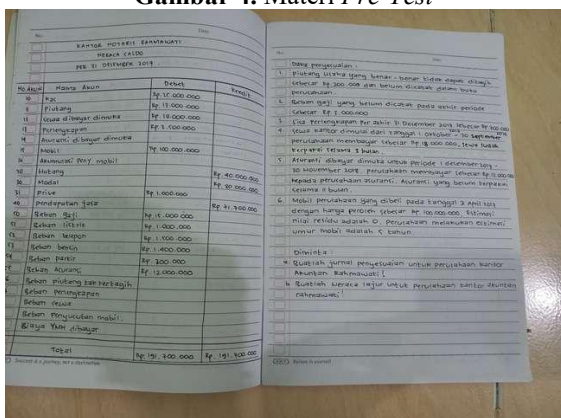 Gambar 4. Materi Pre-Test
No. Date
KANTOR NOTARIS RAHMAWATI
NERACA SALDO
PER 31 DESEMBER 2019
No Akun Nama Akun Debet Kredit
Kas Rp. 25.000.000
Piutang Rp. 15.000.000
Sewa dibayar dimuka Rp. 18.000.000
Perlengkapan Rp. 2.500.000
Asuransi dibayar dimuka
Mobil Rp 100.000.000
Akumulasi Peny mobil
Hutang Rp. 40.000.000
Modal
Prive Rp. 1.000.000
Pendapatan jasa
Beban gaji Rp 15.000.000
Beban listrik Rp 1.000.000
Beban telepon Rp 1.500.000
Beban bensin Rp 1.400.000
Beban parkir Rp 300.000
Beban Asuransi Rp 12.000.000
Beban piutang tak tertagih
Beban perlengkapan
Beban sewa
Beban penyusutan mobil
Biaya YMH dibayar
Total Rp. 191.700.000 Rp. 191.700.000
Success is a journey, not a destination
No. Date
Data penyesuaian :
1. Piutang usaha yang benar-benar tidak dapat ditagih
sebesar Rp 300.000 dan belum dicatat dalam buku
perusahaan.
Beban gaji yang belum dicatat pada akhir periode
sebesar Rp 2.000.000
3. Sisa Perlengkapan Per akhir 31 Desember 2019 sebesar
4. Sewa kantor dimulai dari tanggal 1 oktober - 30 september
perusahaan membayar sebesar Rp 18.000.000, sewa sudah
terpakai selama 3 bulan.
5. Asuransi dibayar dimuka untuk periode 1 desember 2019 -
30 November 2018. perusahaan membayar sebesar Rp 12.000.000
kepada perusahaan asuransi. Asuransi yang belum terpakai
selama 11 bulan.
6. Mobil perusahaan yang dibeli pada tanggal 2 April 2019
dengan harga peroleh sebesar Rp 100.000.000. Estimasi
nilai residu adalah 0. Perusahaan melakukan estimasi
umur mobil adalah 5 tahun.
Diminta :
a. Buatlah jurnal penyesuaian untuk perusahaan kantor
Akuntan Rahmawati !
b. Buatlah neraca lajur untuk perusahaan kantor akuntan
rahmawati!
Believe in yourself